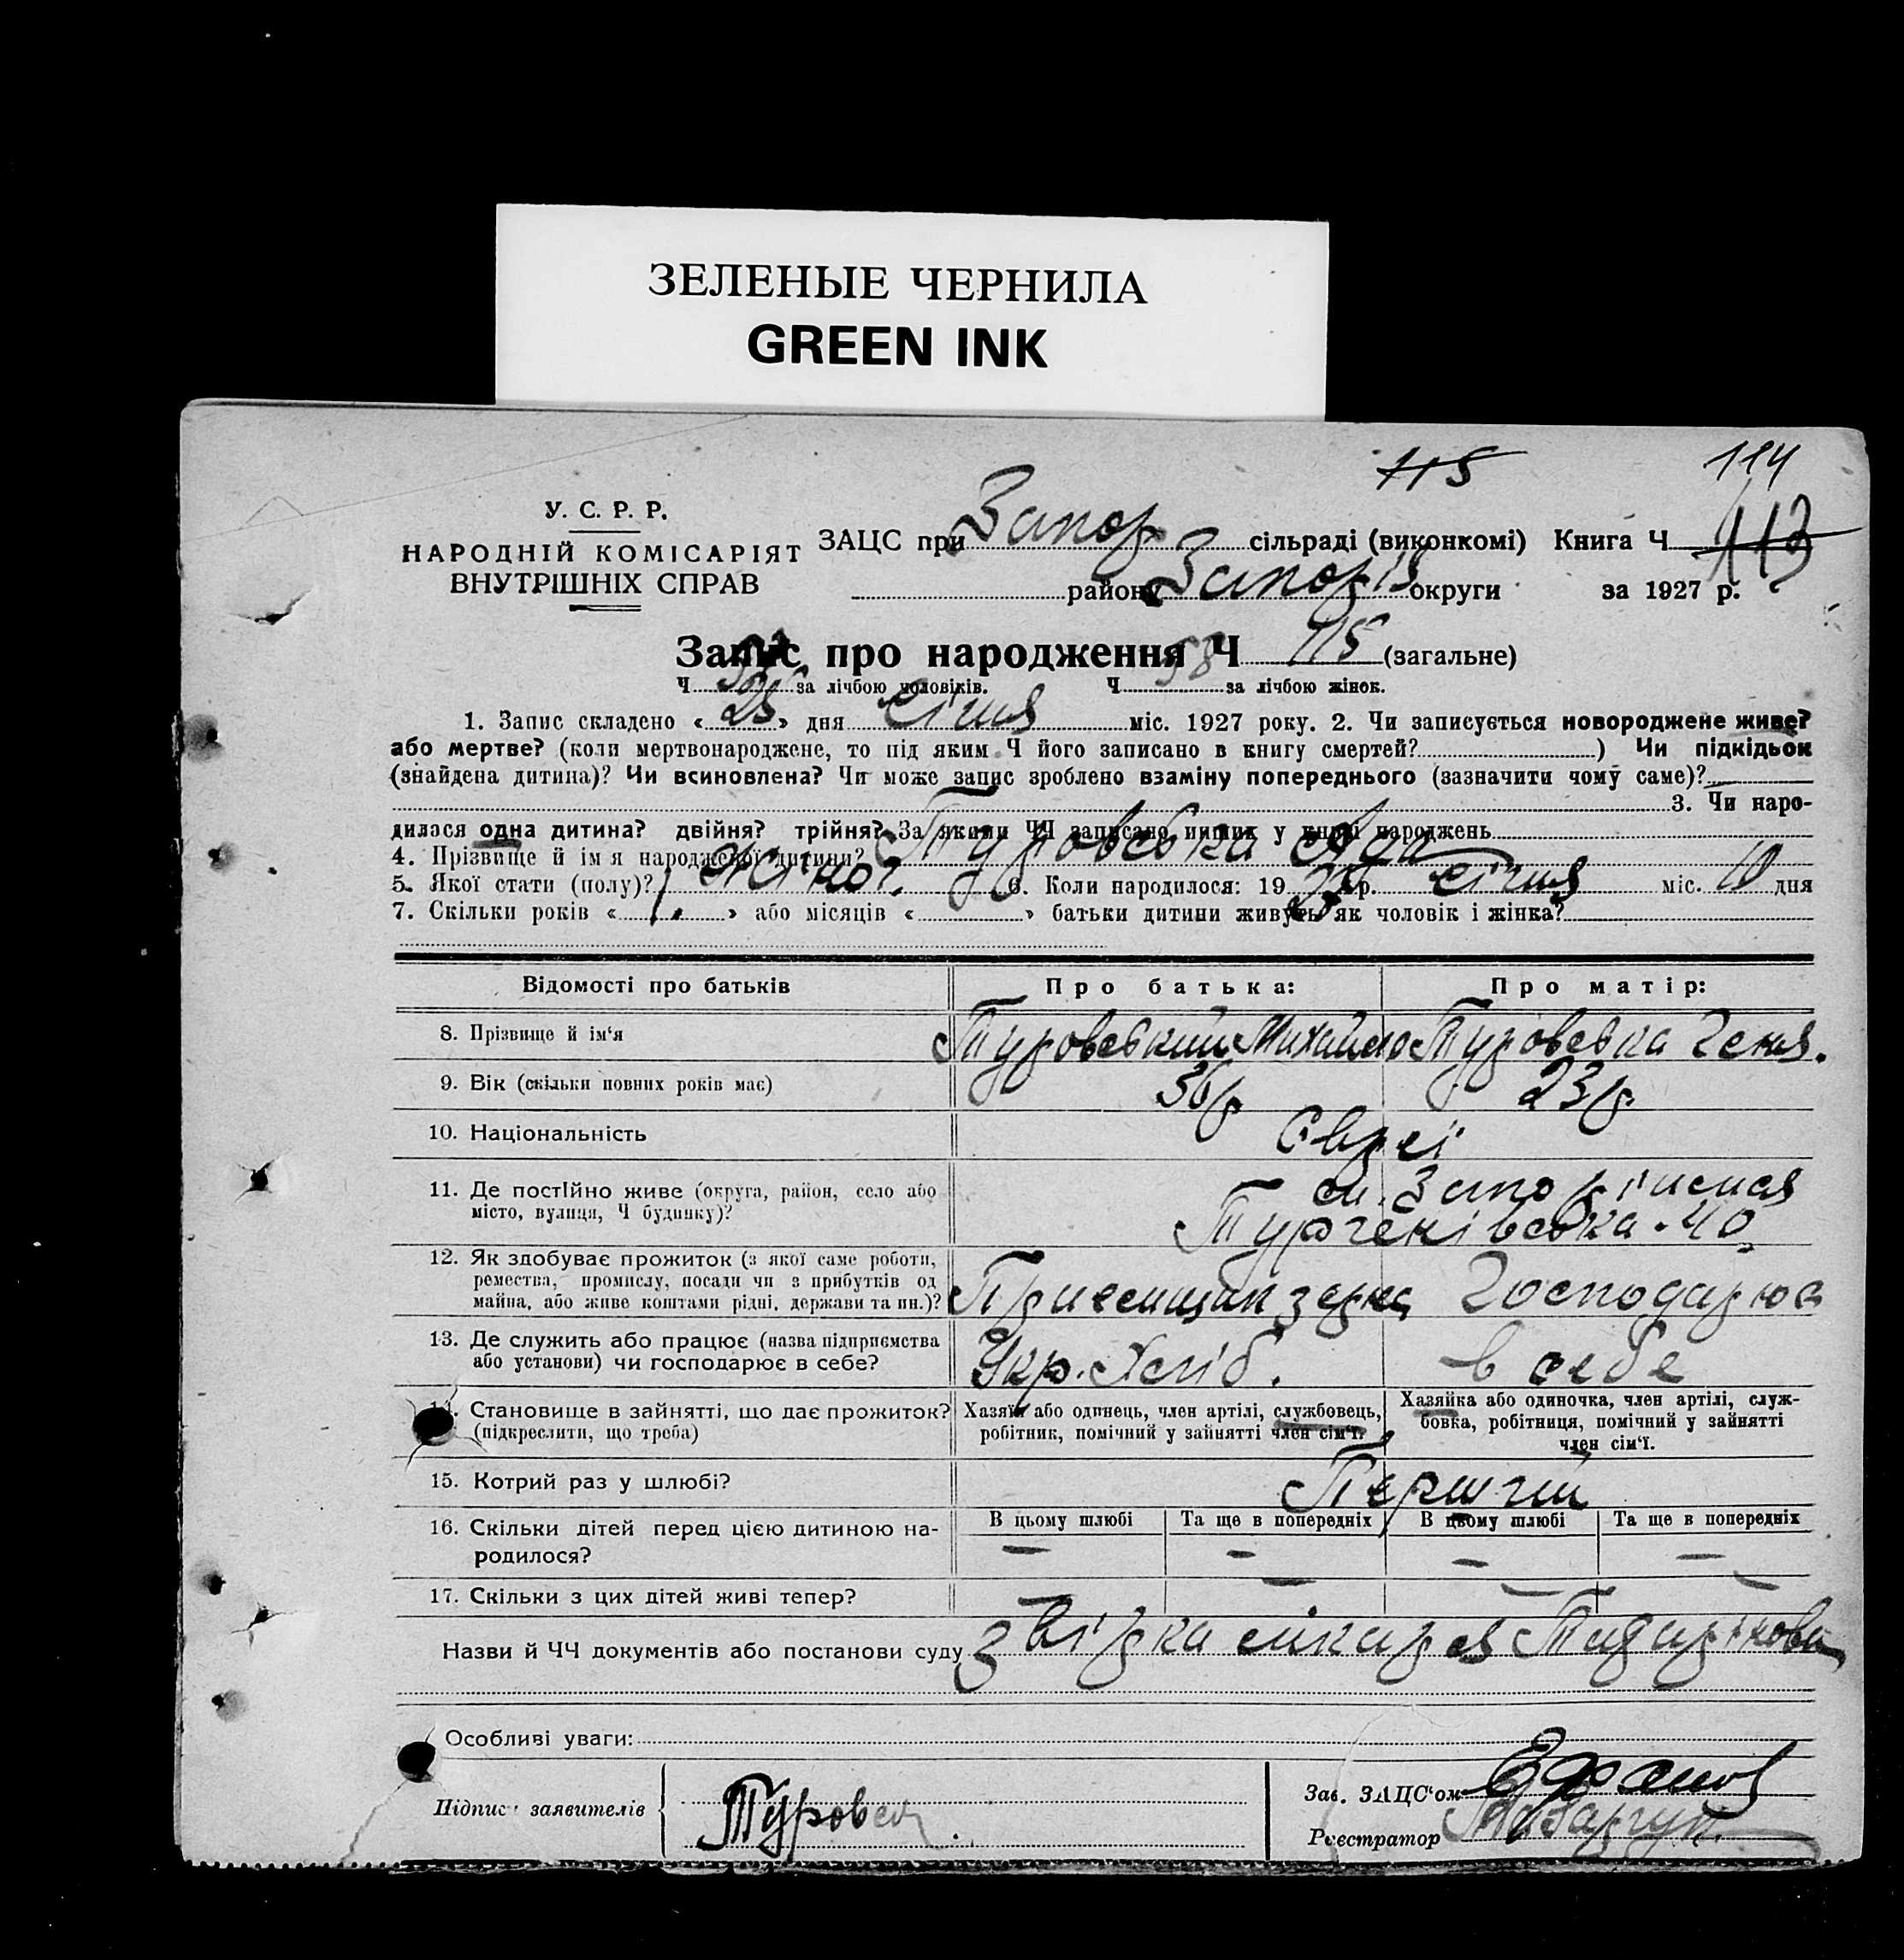 ЗЕЛЕНЫЕ ЧЕРНИЛА
GREEN INK
115 114
У. С. Р. Р.
НАРОДНІЙ КОМІСАРІЯТ
ВНУТРІШНІХ СПРАВ
ЗАЦС при Запор сільраді (виконкомі) Книга Ч 113
району Запоріз округи за 1927 р.
Запис про народження Ч 115 (загальне)
Ч за лічбою чоловіків. Ч 58 за лічбою жінок.
1. Запис складено « 25 » дня січня міс. 1927 року. 2. Чи записується новороджене живе?
або мертве? (коли мертвонароджене, то під яким Ч його записано в книгу смертей? ) Чи підкідьок
(знайдена дитина)? Чи всиновлена? Чи може запис зроблено взаміну попереднього (зазначити чому саме)?
3. Чи наро-
дилася одна дитина? двійня? трійня? За якими ЧЧ записано инших у книзі народжень
4. Прізвище й ім я народженої дитини? Туровська Ада
5. Якої статі (полу)? Жіноч. 6. Коли народилося: 19 р. січня міс. 10 дня
7. Скільки років « » або місяців « » батьки дитини живуть як чоловік і жінка?
Відомості про батьків Про батька: Про матір:
8. Прізвище й ім‘я Туровський Михайло Туровська Геня.
9. Вік (скільки повних років має) 36 р 23 р.
10. Національність Євреї
11. Де постІйно живе (округа, район, село або місто, вулиця, Ч будинку)? м. Запоріжжя
Тургенівська 40
12. Як здобуває прожиток (з якої саме роботи,
ремества, промислу, посади чи з прибутків од
майна, або живе коштами рідні, держави та ин.)? зерна Господарює
13. Де служить або працює (назва підприємства
або установи) чи господарює в себе? Укр. Хліб. в себе
14. Становище в зайнятті, що дає прожиток?
(підкреслити, що треба)
Хазяїн або одинець, член артілі, службовець,
робітник, помічний у зайнятті член сім‘ї.
Хазяйка або одиночка, член артілі, служ-
бовка, робітниця, помічний у зайнятті
член сім‘ї.
15. Котрий раз у шлюбі? Перший
16. Скільки дітей перед цією дитиною на-
родилося?
В цьому шлюбі Та ще в попередніх В цьому шлюбі Та ще в попередніх
— — — —
17. Скільки з цих дітей живі тепер? — — —
Назви й ЧЧ документів або постанови суду звірка лікаря
Особливі уваги:
Підпис заявителів Туровск
Зав. ЗАЦС‘ом
Реєстратор